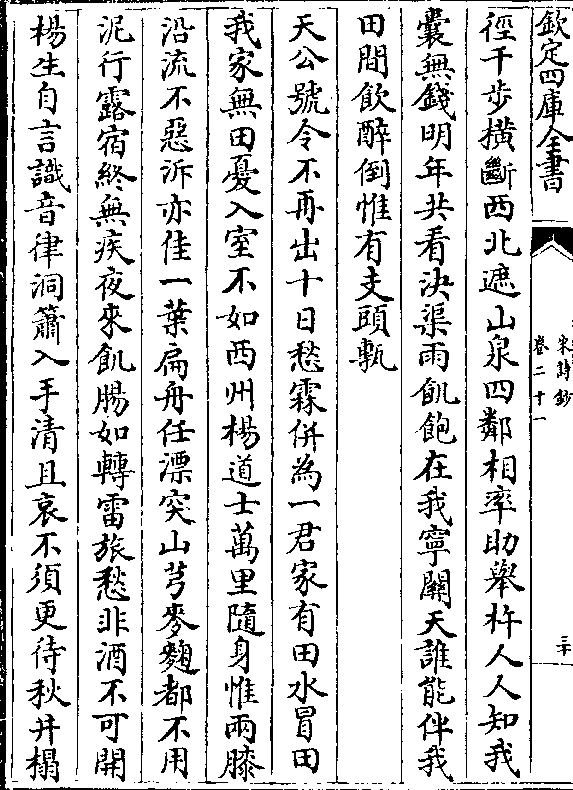 欽定四庫全書
宋詩鈔
卷二十一
三十
徑千步橫斷西北遮山泉四鄰相率助舉杵人人知我
囊無錢明年共看決渠雨飢飽在我寧關天誰能伴我
田間飲醉倒惟有支頭甎
天公號令不再出十日愁霖併為一君家有田水冒田
我家無田憂入室不如西州楊道士萬里隨身惟兩膝
沿流不惡泝亦佳一葉扁舟任漂突山芎麥麴都不用
泥行露宿終無疾夜來飢腸如轉雷旅愁非酒不可開
楊生自言識音律洞簫入手清且哀不須更待秋井榻